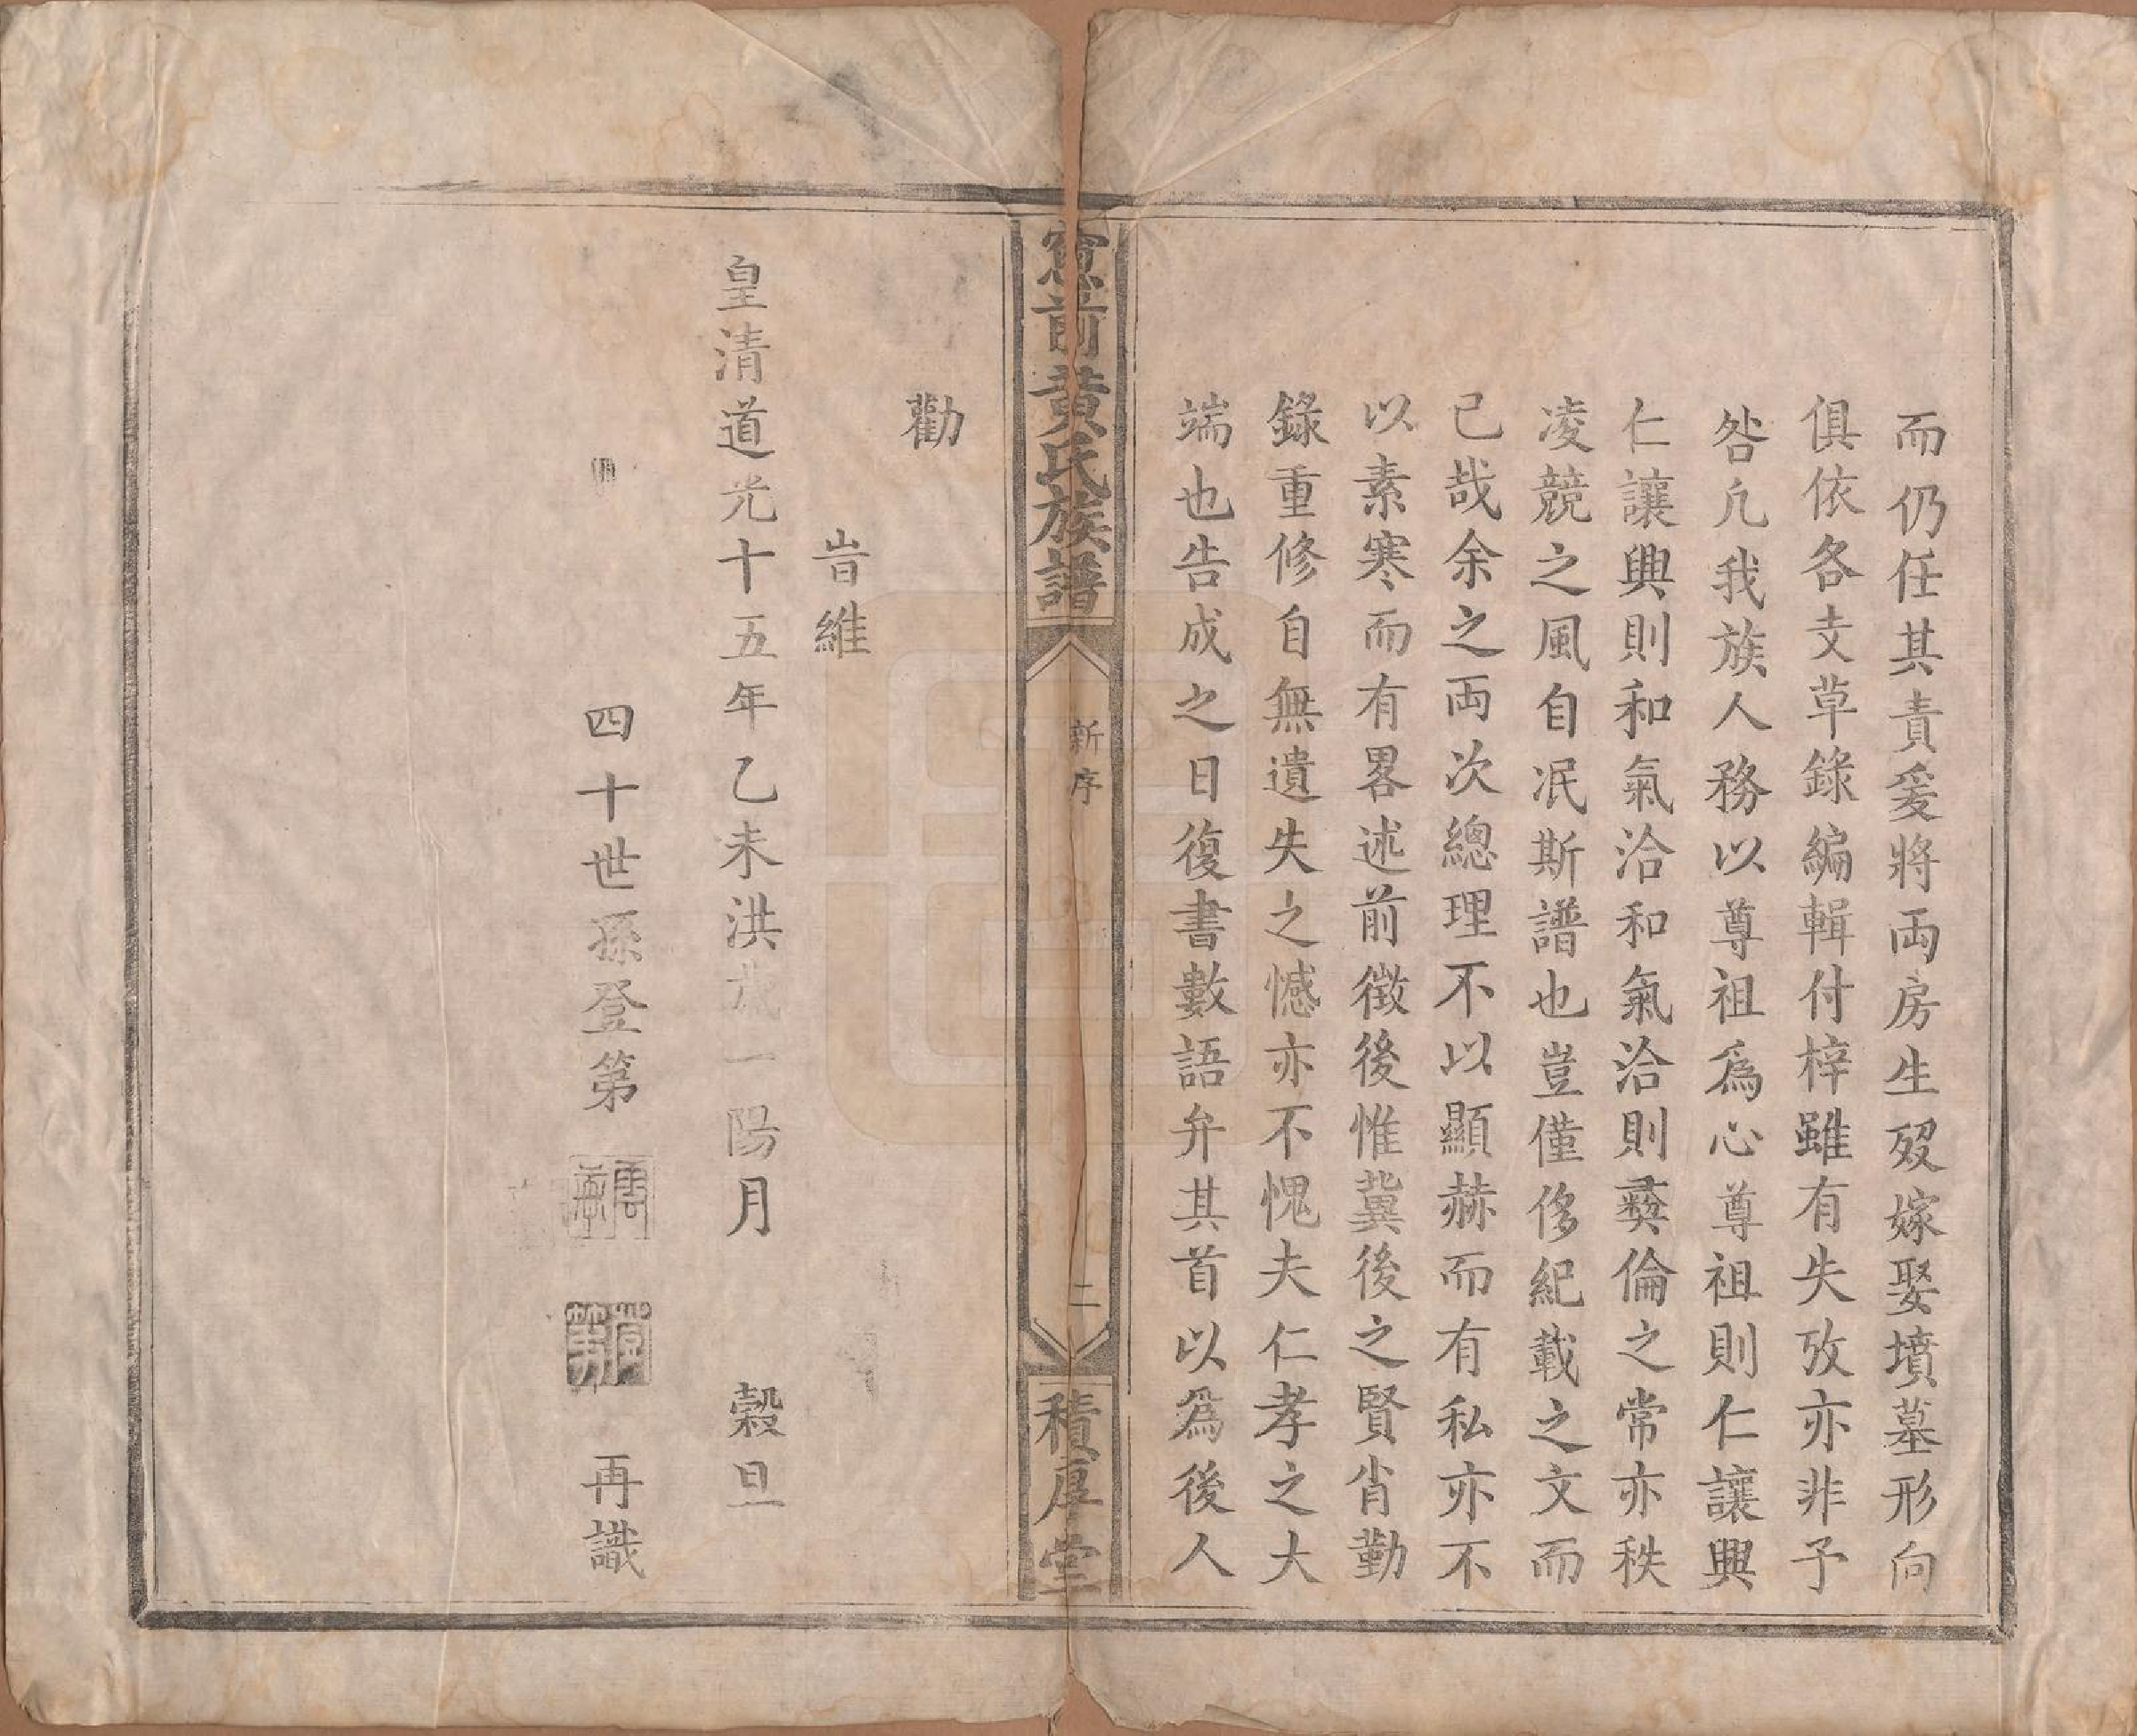 而仍任其責爰將両房生歿嫁娶墳墓形向
俱依各支草錄編輯付梓雖有失攷亦非予
咎凢我族人務以尊祖爲心尊祖則仁讓興
仁讓興則和氣洽和氣洽則彜倫之常亦秩
凌競之風自泯斯譜也豈僅侈紀載之文而
已哉余之両次總理不以顯赫而有私亦不
以素寒而有畧述前徵後惟冀後之賢肖勤
錄重修自無遺失之憾亦不愧夫仁孝之大
端也告成之日復書數語弁其首以爲後人
窻前黄氏族譜
新序
二
積厚堂
勸
旹維
皇清道光十五年乙未洪歲一陽月　穀旦
四十世孫登第　再識
登第